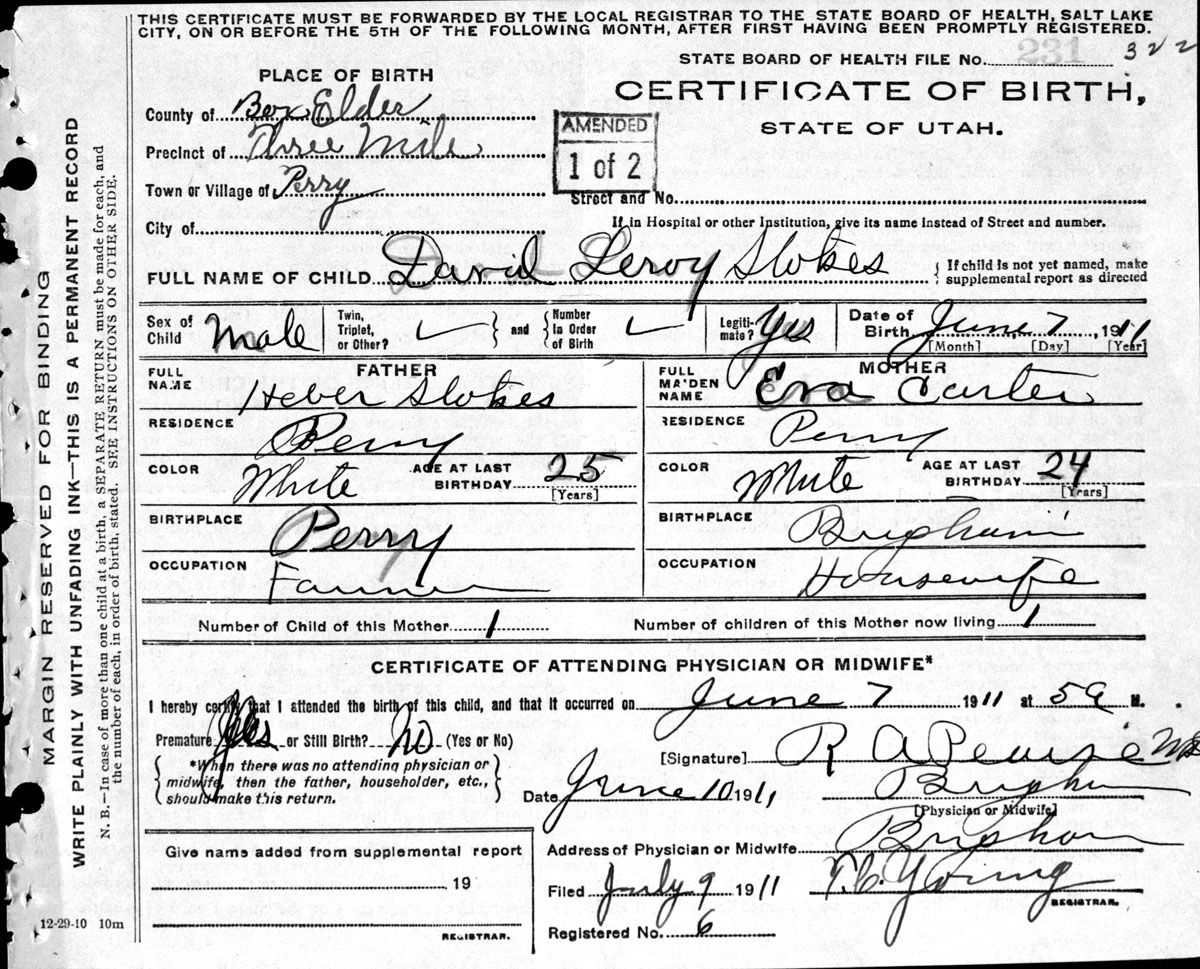 THIS CERTIFICATE MUST BE FORWARDED BY THE LOCAL REGISTRAR TO THE STATE BOARD OF HEALTH, SALT LAKE
CITY, ON OR BEFORE THE 5TH OF THE FOLLOWING MONTH, AFTER FIRST HAVING BEEN PROMPTLY REGISTERED.
STATE BOARD OF HEALTH FILE No. 231 322
PLACE OF BIRTH
CERTIFICATE OF BIRTH,
STATE OF UTAH.
County of Box Elder
AMENDED
1 of 2
Precinct of Three Mile
Town or Village of Perry
Street and No.
City of
If in Hospital or other Institution, give its name instead of Street and number.
FULL NAME OF CHILD David Leroy Stokes
{ If child is not yet named, make
supplemental report as directed
Sex of Child Male
Twin, Triplet, or Other?
and
Number in Order of Birth
Legiti-mate? Yes
Date of Birth June 7, 1911
[Month] [Day] [Year]
FATHER
FULL NAME Heber Stokes
RESIDENCE Perry
COLOR White AGE AT LAST BIRTHDAY 25
[Years]
BIRTHPLACE Perry
OCCUPATION Farmer
MOTHER
FULL MAIDEN NAME Eva Carter
RESIDENCE Perry
COLOR White AGE AT LAST BIRTHDAY 24
[Years]
BIRTHPLACE Brigham
OCCUPATION Housewife
Number of Child of this Mother 1
Number of children of this Mother now living 1
CERTIFICATE OF ATTENDING PHYSICIAN OR MIDWIFE*
I hereby certify that I attended the birth of this child, and that it occurred on June 7 1911 at 5a M.
Premature Yes or Still Birth? No (Yes or No)
*When there was no attending physician or
midwife, then the father, householder, etc.,
should make this return.
[Signature] R A Pearse MD
Date June 10 1911 Brigham
[Physician or Midwife]
Address of Physician or Midwife Brigham
Filed July 9 1911 T. C. Young
REGISTRAR.
Registered No. 6
Give name added from supplemental report
19
REGISTRAR.
12-29-10 10m
MARGIN RESERVED FOR BINDING
WRITE PLAINLY WITH UNFADING INK—THIS IS A PERMANENT RECORD
N. B.—In case of more than one child at a birth, a SEPARATE RETURN must be made for each, and
the number of each, in order of birth, stated. SEE INSTRUCTIONS ON OTHER SIDE.